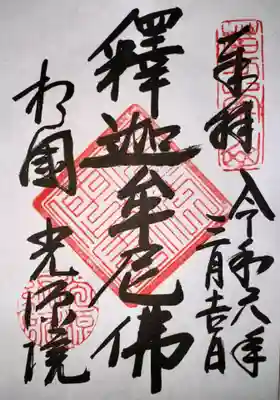 奉拝
令和六年
二月吉日
釋迦牟尼佛
相國 光源院